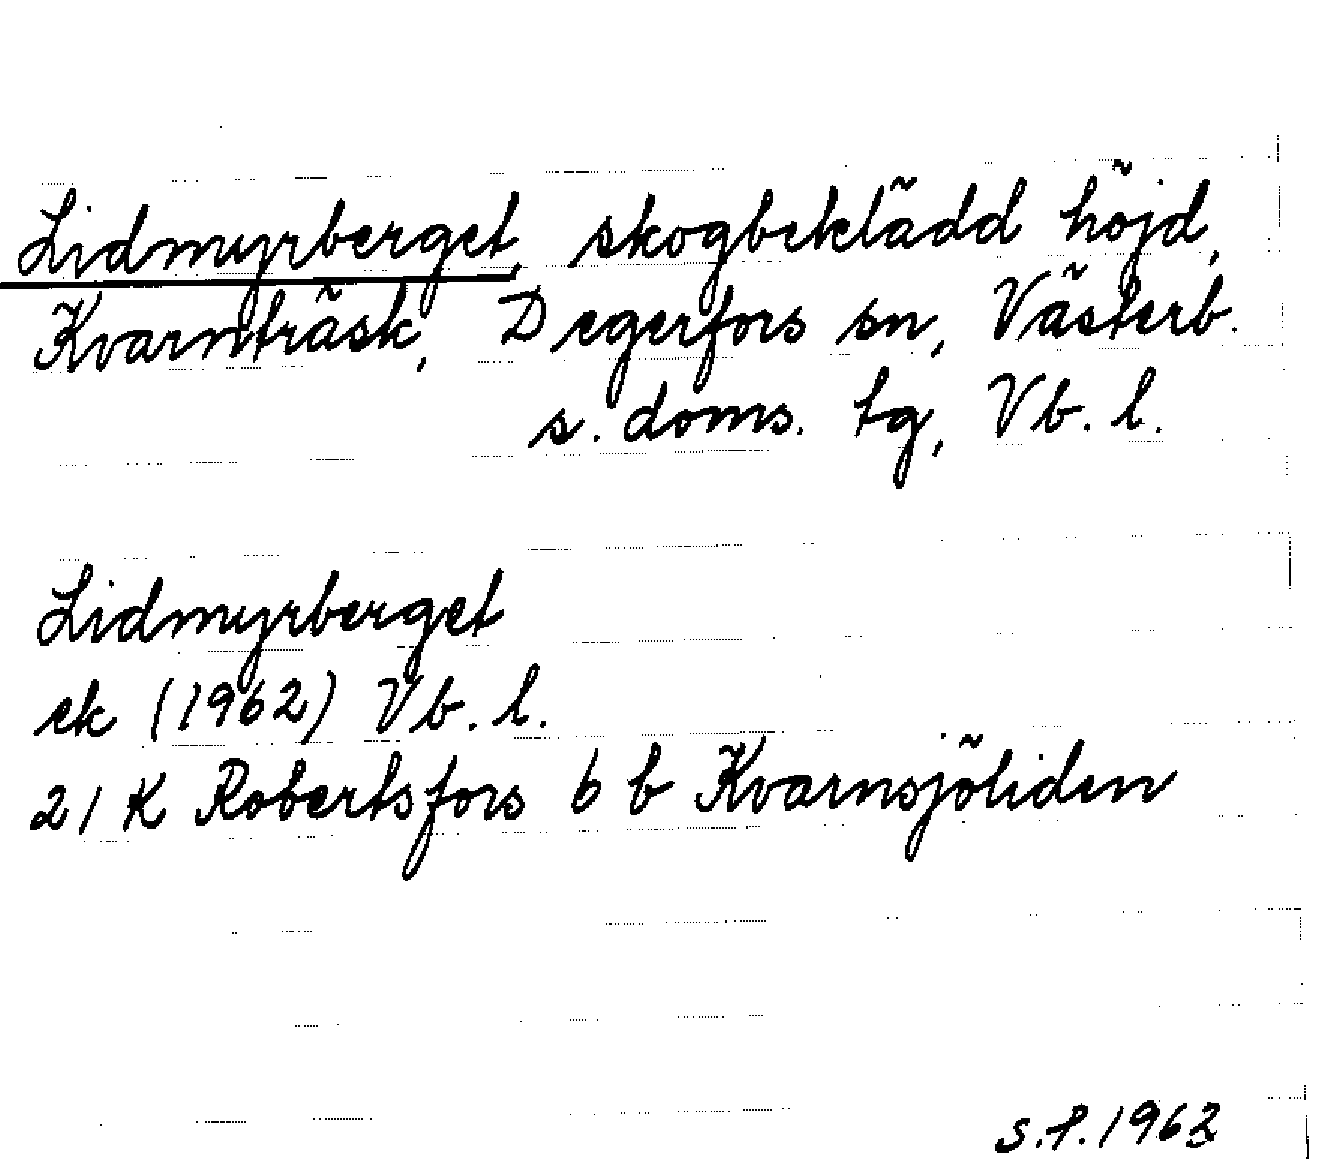 Lidmyrberget, skogbeklädd höjd,
Kvarnträsk, Degerfors sn, Västerb.
s. doms. tg, Vb. l.
Lidmyrberget
ek (1962) Vb. l.
21 K Robertsfors 6 b Kvarnsjöliden
s.f. 1963